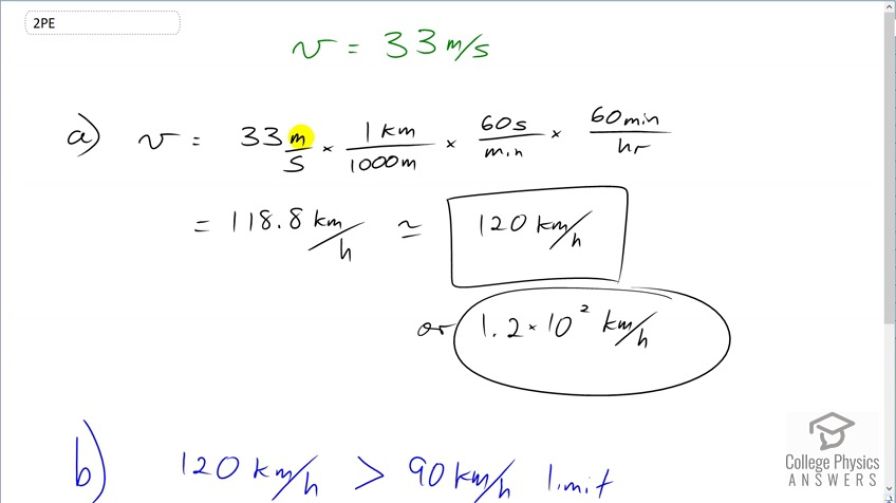 2PE
v = 33 m/s
a) v = 33 m/s × 1 km/1000 m × 60 s/min × 60 min/hr
= 118.8 km/h ≃ 120 km/h
or 1.2 × 10² km/h
b) 120 km/h > 90 km/h limit
College Physics
ANSWERS